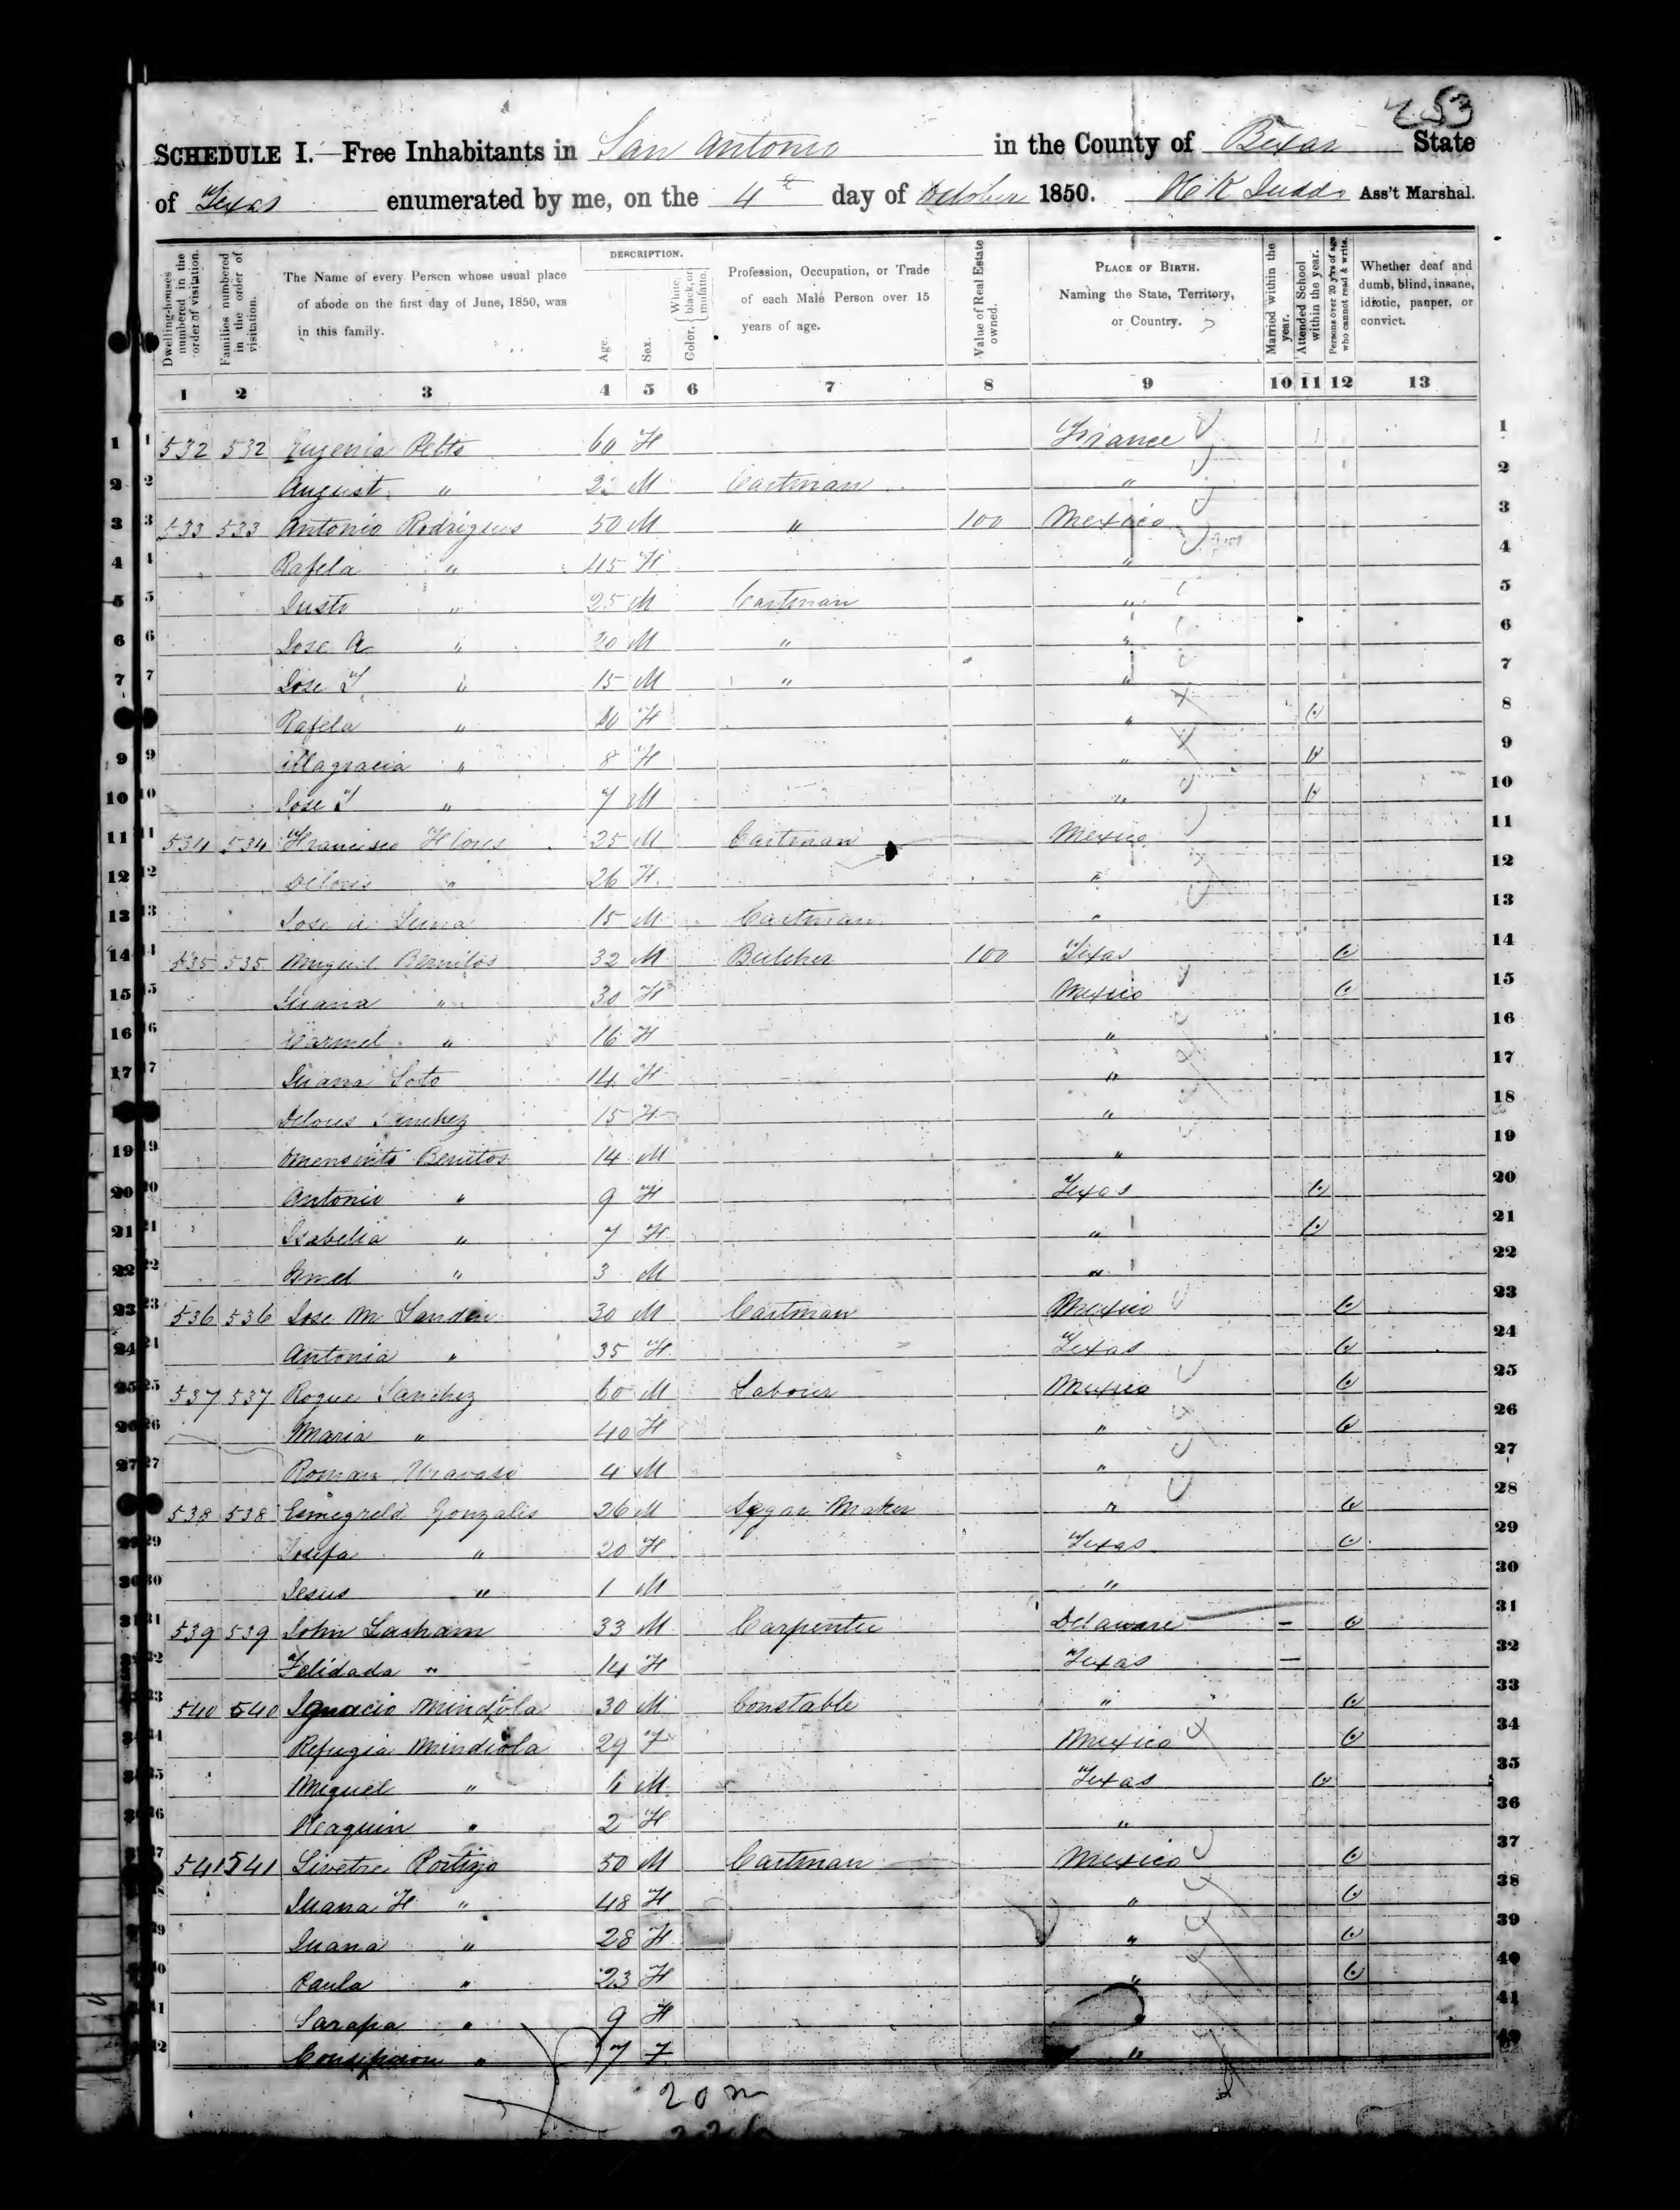 253
SCHEDULE I.—Free Inhabitants in San Antonio in the County of Bexar State
of Texas enumerated by me, on the 4th day of October 1850. Ass't Marshal.
Dwelling-houses numbered in the order of visitation.
Families numbered in the order of visitation.
The Name of every Person whose usual place of abode on the first day of June, 1850, was in this family.
DESCRIPTION.
Age.
Sex.
Color, { White, black, or mulatto.
Profession, Occupation, or Trade of each Male Person over 15 years of age.
Value of Real Estate owned.
PLACE OF BIRTH. Naming the State, Territory, or Country.
Married within the year.
Attended School within the year.
Persons over 20 y'rs of age who cannot read & write.
Whether deaf and dumb, blind, insane, idiotic, pauper, or convict.
1 2 3 4 5 6 7 8 9 10 11 12 13
1 532 532 Eugenia Pelto 60 F France 1
2 August " M Cartman " 2
3 533 533 Antonio Rodrigues 50 M " 100 Mexico 3
4 Rafela " 45 F " 4
5 Justo " 25 M Cartman " 5
6 Jose A " 20 M " " 6
7 Jose T " 15 M " " 7
Rafela " 10 F " 8
9 " 8 F " 9
10 Jose T " 7 M " 10
11 534 534 Francisco Flores 25 M Cartman Mexico 11
12 Deloris " 26 F " 12
13 Jose A 15 M Cartman " 13
14 535 535 Miguel Benitos 32 M Butcher 100 Texas 14
15 Juana " 30 F Mexico 15
16 Carmel " 16 F " 16
17 Juana Soto 14 F " 17
Delores Sanchez 15 F " 18
19 Benitos 14 M " 19
20 Antonio " 9 F Texas 20
21 Isabella " 7 F " 21
22 " 3 M " 22
23 536 536 Jose M 30 M Cartman Mexico 23
24 Antonia " 35 F Texas 24
25 537 537 Roque Sanchez 60 M Labour Mexico 25
26 Maria " 40 F " 26
27 Roman 4 M " 27
538 538 Gonzalis 26 M Segar Maker " 28
29 Josefa " 20 F Texas 29
30 Jesus " 1 M " 30
31 539 539 John Lasham 33 M Carpenter Delaware – 31
32 Felidada " 14 F Texas – 32
33 540 540 Ignacio Mindiola 30 M Constable " 33
34 Refugia Mindiola 29 F Mexico 34
35 Miguel " 6 M Texas 35
36 " 2 F " 36
541 541 50 M Cartman Mexico 37
Juana F " 48 F " 38
Juana " 28 F " 39
Paula " 23 F " 40
Sarapa " 9 F " 41
" 7 F "
20 m